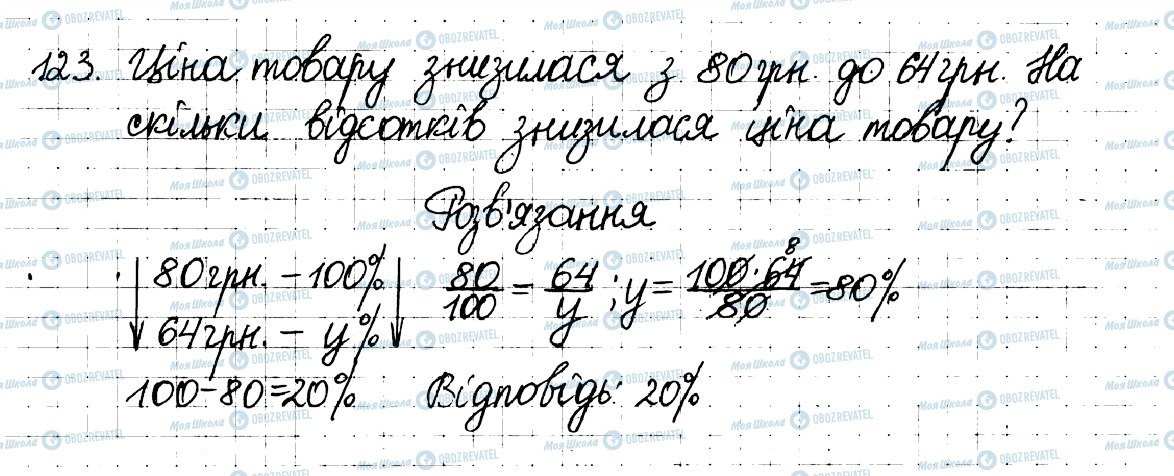 123. Ціна товару знизилася з 80 грн. до 64 грн. На
скільки відсотків знизилася ціна товару?
Розв'язання
80 грн. – 100% 80/100 = 64/у ; у = 100·64/80 = 80%
8
64 грн. – у%
100–80=20% Відповідь: 20%
Моя Школа OBOZREVATEL